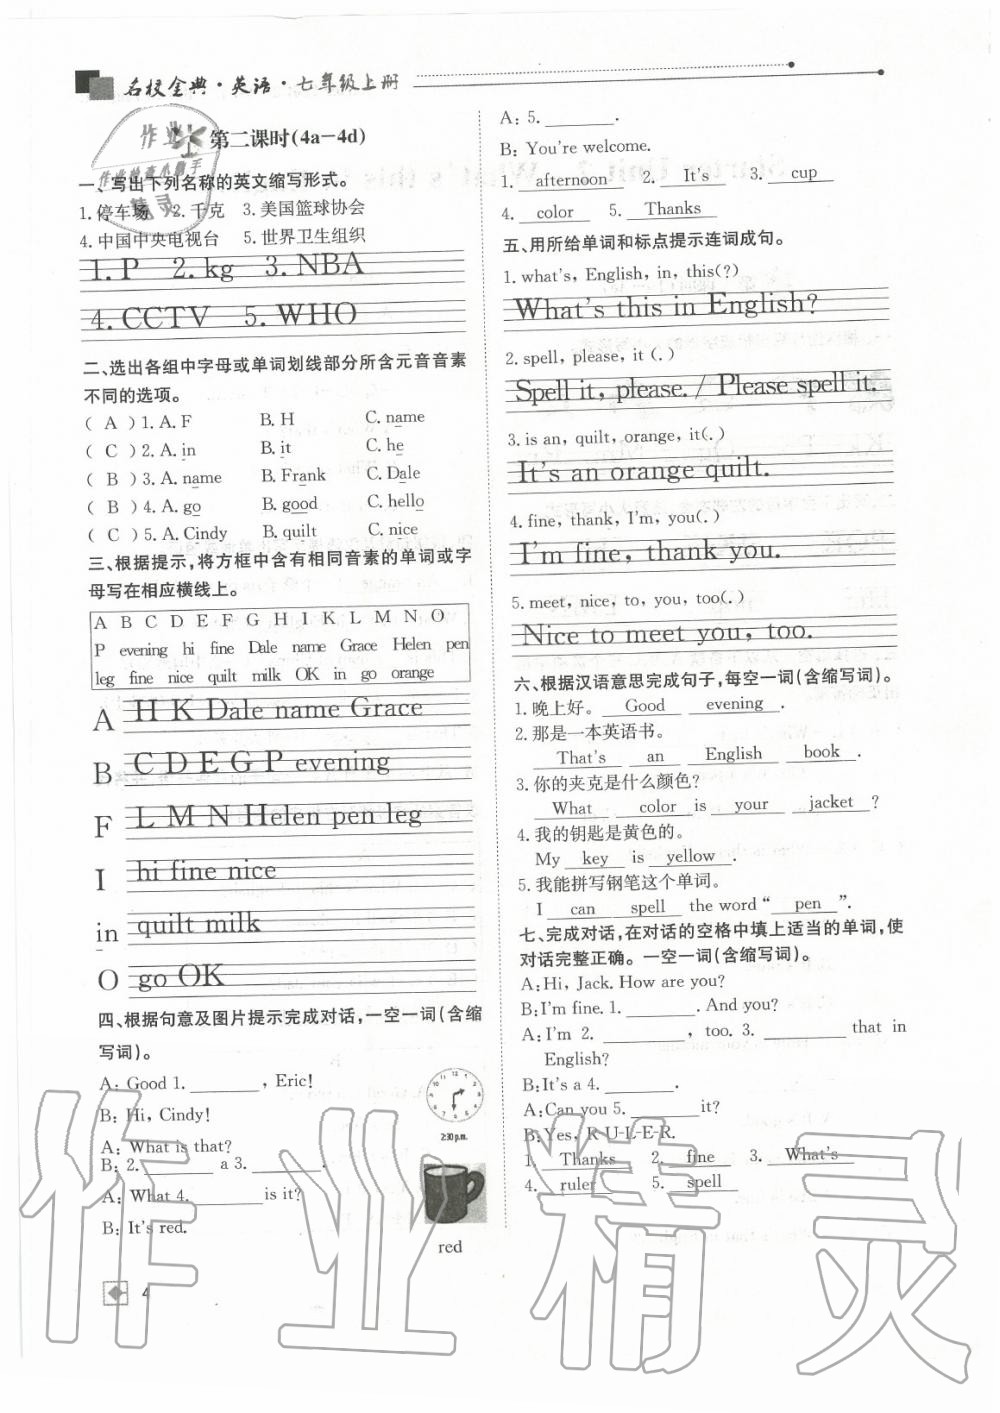 名校金典·英语·七年级上册
第二课时(4a-4d)
一、写出下列名称的英文缩写形式。
1.停车场 2.千克 3.美国篮球协会
4.中国中央电视台 5.世界卫生组织
1. P 2. kg 3. NBA
4. CCTV 5. WHO
二、选出各组中字母或单词划线部分所含元音音素
不同的选项。
( A )1. A. F B. H C. name
( C )2. A. in B. it C. he
( B )3. A. name B. Frank C. Dale
( B )4. A. go B. good C. hello
( C )5. A. Cindy B. quilt C. nice
三、根据提示,将方框中含有相同音素的单词或字
母写在相应横线上。
A B C D E F G H I K L M N O
P evening hi fine Dale name Grace Helen pen
leg fine nice quilt milk OK in go orange
A H K Dale name Grace
B C D E G P evening
F L M N Helen pen leg
I hi fine nice
in quilt milk
O go OK
四、根据句意及图片提示完成对话,一空一词(含缩
写词)。
A: Good 1. ________, Eric!
B: Hi, Cindy!
A: What is that?
B: 2. ________ a 3. ________.
A: What 4. ________ is it?
B: It's red.
2:30 p.m.
red
4
A: 5. ________.
B: You're welcome.
1. afternoon 2. It's 3. cup
4. color 5. Thanks
五、用所给单词和标点提示连词成句。
1. what's, English, in, this(?)
What's this in English?
2. spell, please, it (.)
Spell it, please. / Please spell it.
3. is an, quilt, orange, it(.)
It's an orange quilt.
4. fine, thank, I'm, you(.)
I'm fine, thank you.
5. meet, nice, to, you, too(.)
Nice to meet you, too.
六、根据汉语意思完成句子,每空一词(含缩写词)。
1. 晚上好。 Good evening.
2. 那是一本英语书。
That's an English book.
3. 你的夹克是什么颜色?
What color is your jacket?
4. 我的钥匙是黄色的。
My key is yellow.
5. 我能拼写钢笔这个单词。
I can spell the word “pen”.
七、完成对话,在对话的空格中填上适当的单词,使
对话完整正确。一空一词(含缩写词)。
A: Hi, Jack. How are you?
B: I'm fine. 1. ________. And you?
A: I'm 2. ________, too. 3. ________ that in
English?
B: It's a 4. ________.
A: Can you 5. ________ it?
B: Yes, R-U-L-E-R.
1. Thanks 2. fine 3. What's
4. ruler 5. spell
作业精灵